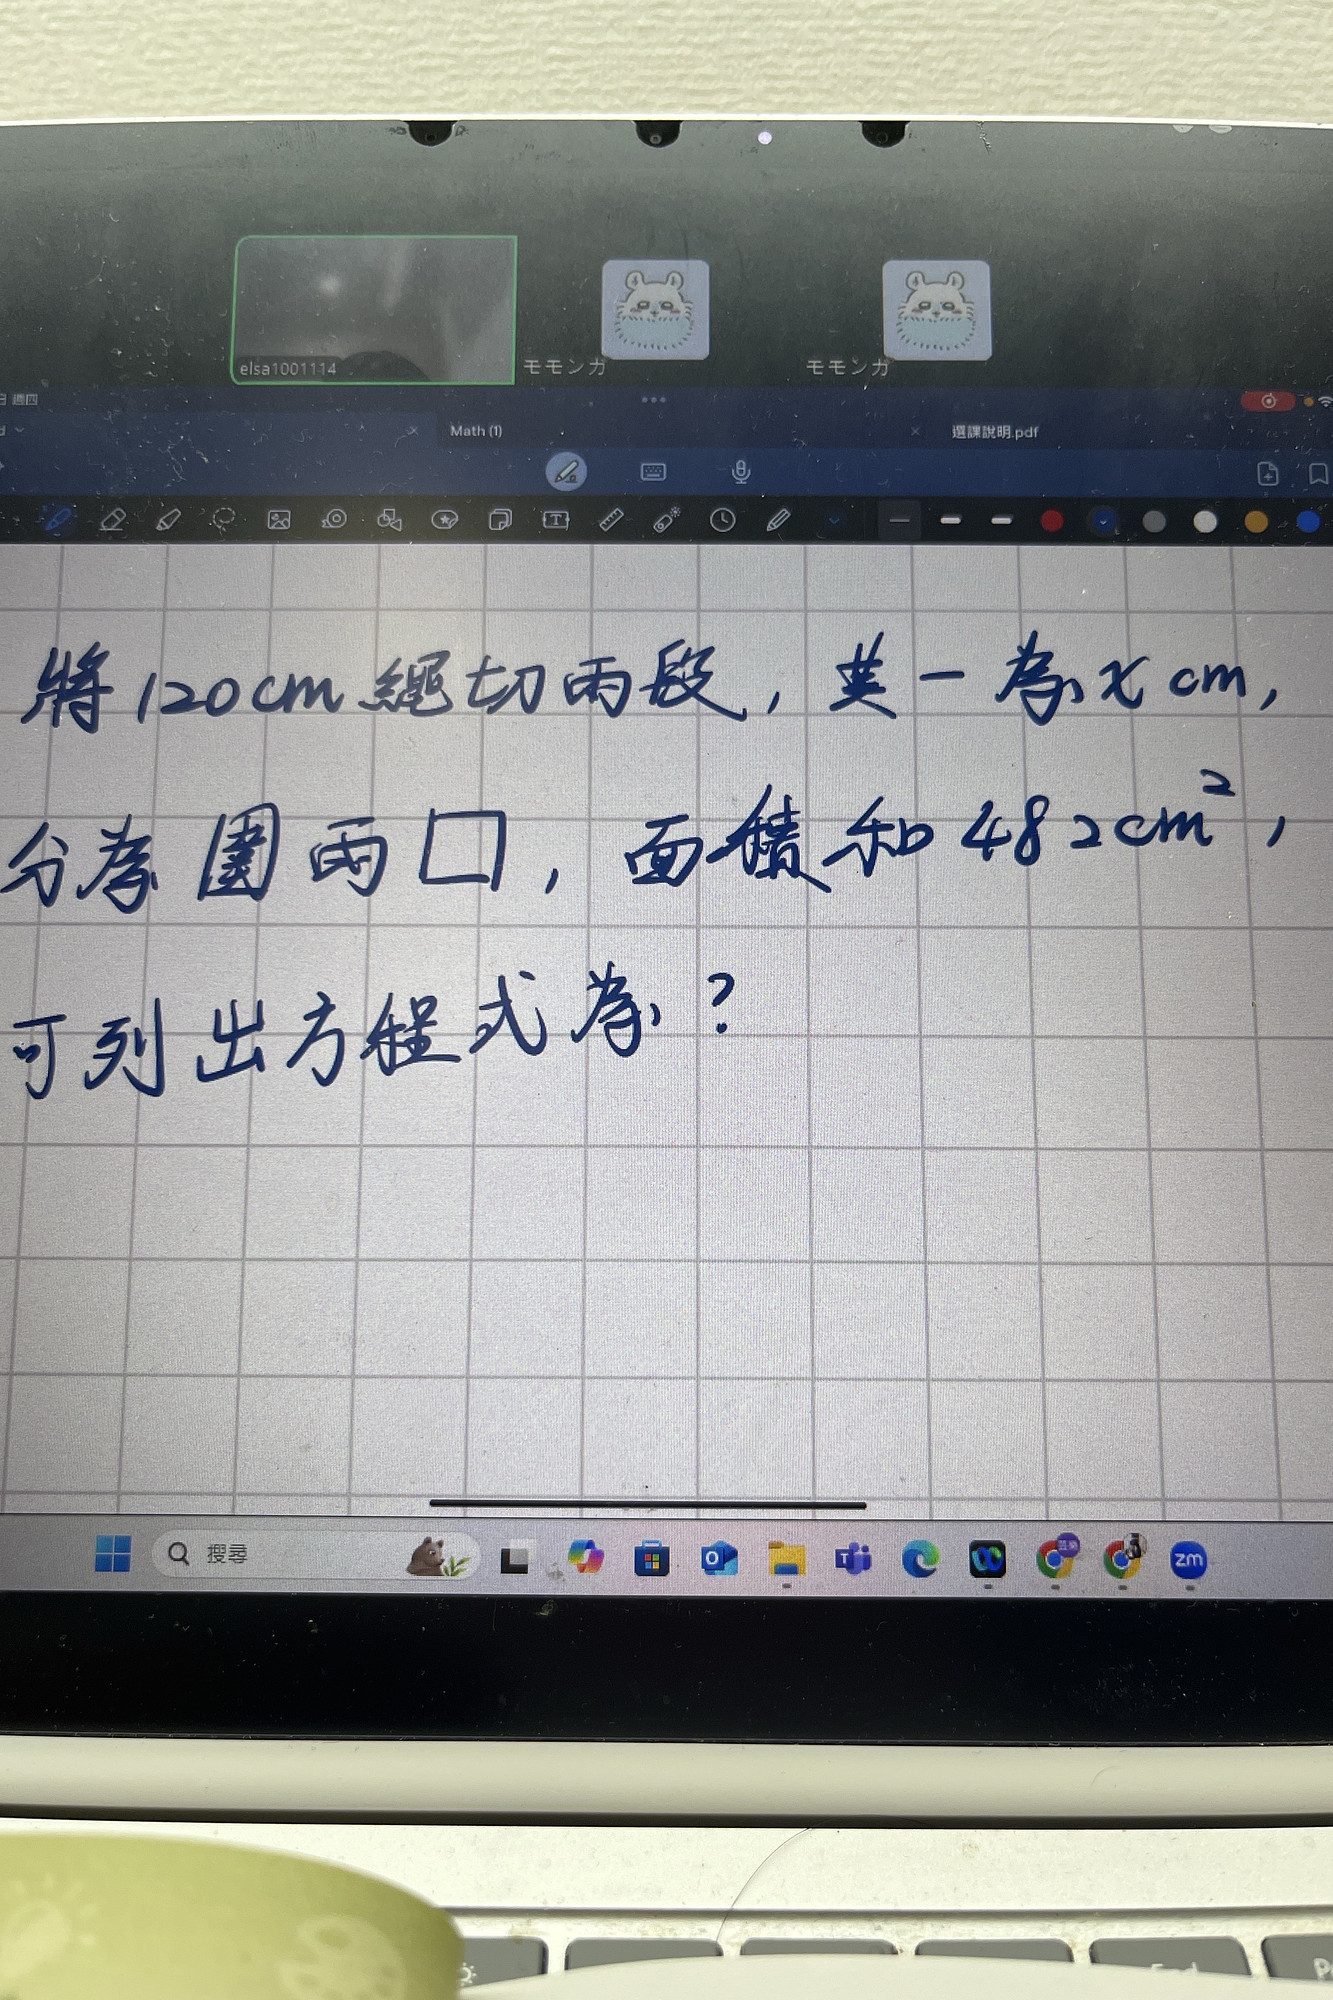 elsa1001114
モモンガ
モモンガ
週四
Math (1)
選課說明.pdf
將120cm繩切兩段，其一為x cm，
分為圍兩□，面積和482cm²，
可列出方程式為？
搜尋
zm
End